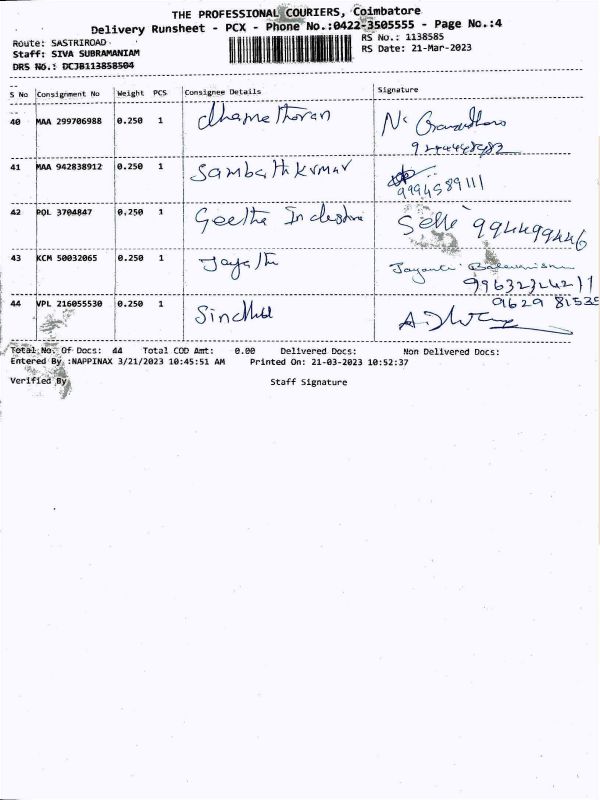 THE PROFESSIONAL COURIERS, Coimbatore
Delivery Runsheet - PCX - Phone No.:0422-3505555 - Page No.:4
Route: SASTRIROAD
RS No.: 1138585
Staff: SIVA SUBRAMANIAM
RS Date: 21-Mar-2023
DRS No.: DCJB113858504
S No Consignment No Weight PCS Consignee Details Signature
40 MAA 299706988 0.250 1
41 MAA 942838912 0.250 1 Sambathkumar
9994589111
42 POL 3704847 0.250 1 Geetha
994499446
43 KCM 50032065 0.250 1
44 VPL 216055530 0.250 1
9629 81535
Total No. Of Docs: 44 Total COD Amt: 0.00 Delivered Docs: Non Delivered Docs:
Entered By :NAPPINAX 3/21/2023 10:45:51 AM Printed On: 21-03-2023 10:52:37
Verified By Staff Signature